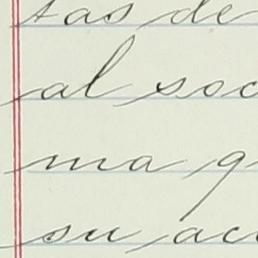 tas de
al soc
ma q
su acu